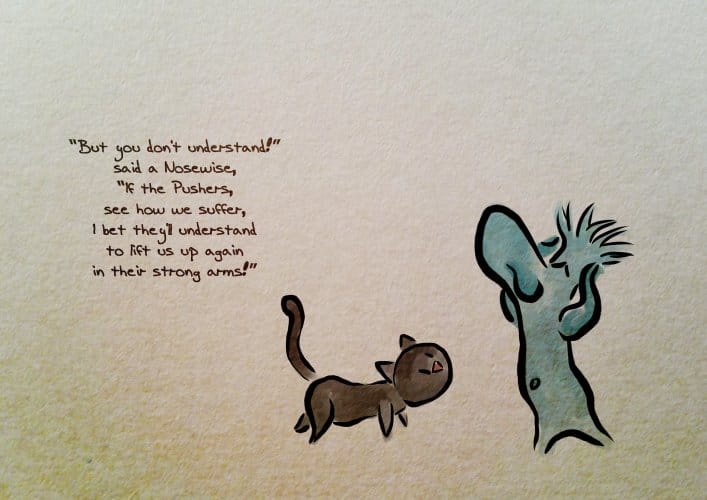 "But you don't understand!"
said a Nosewise,
"If the Pushers,
see how we suffer,
I bet they'll understand
to lift us up again
in their strong arms!"